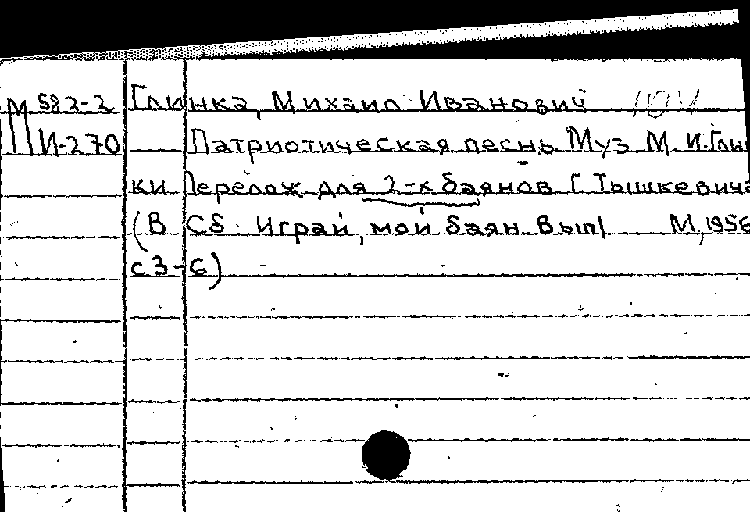 М 582-2 Глинка, Михаил Иванович
И-270 Патриотическая песнь Муз М. И. Глин
ки Перелож для 2-х баянов Г. Тышкевича
(В сб. Играй, мой баян Вып 1 М, 1956
с 3-6)